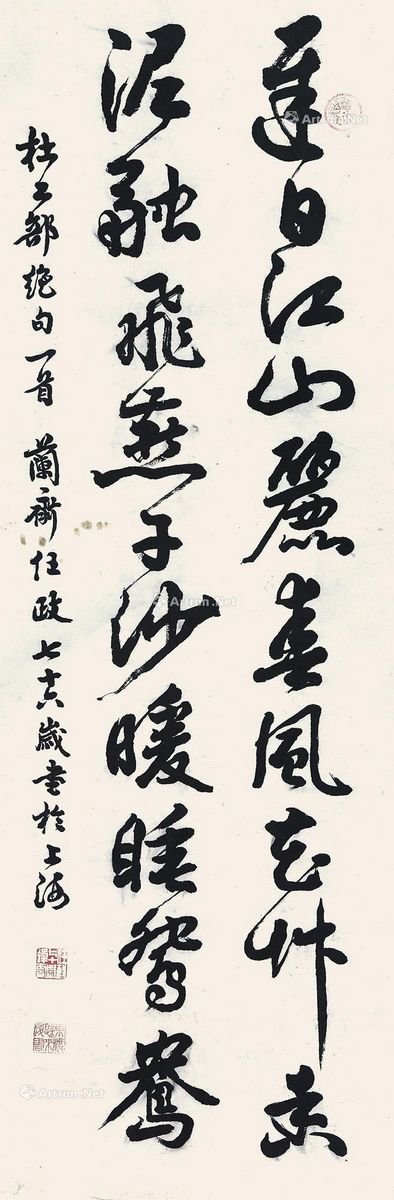 遲日江山麗春風花草香
泥融飛燕子沙暖睡鴛鴦
杜工部絕句一首 蘭齋任政七十六歲書於上海
Artron.Net
Artron.Net
Artron.Net